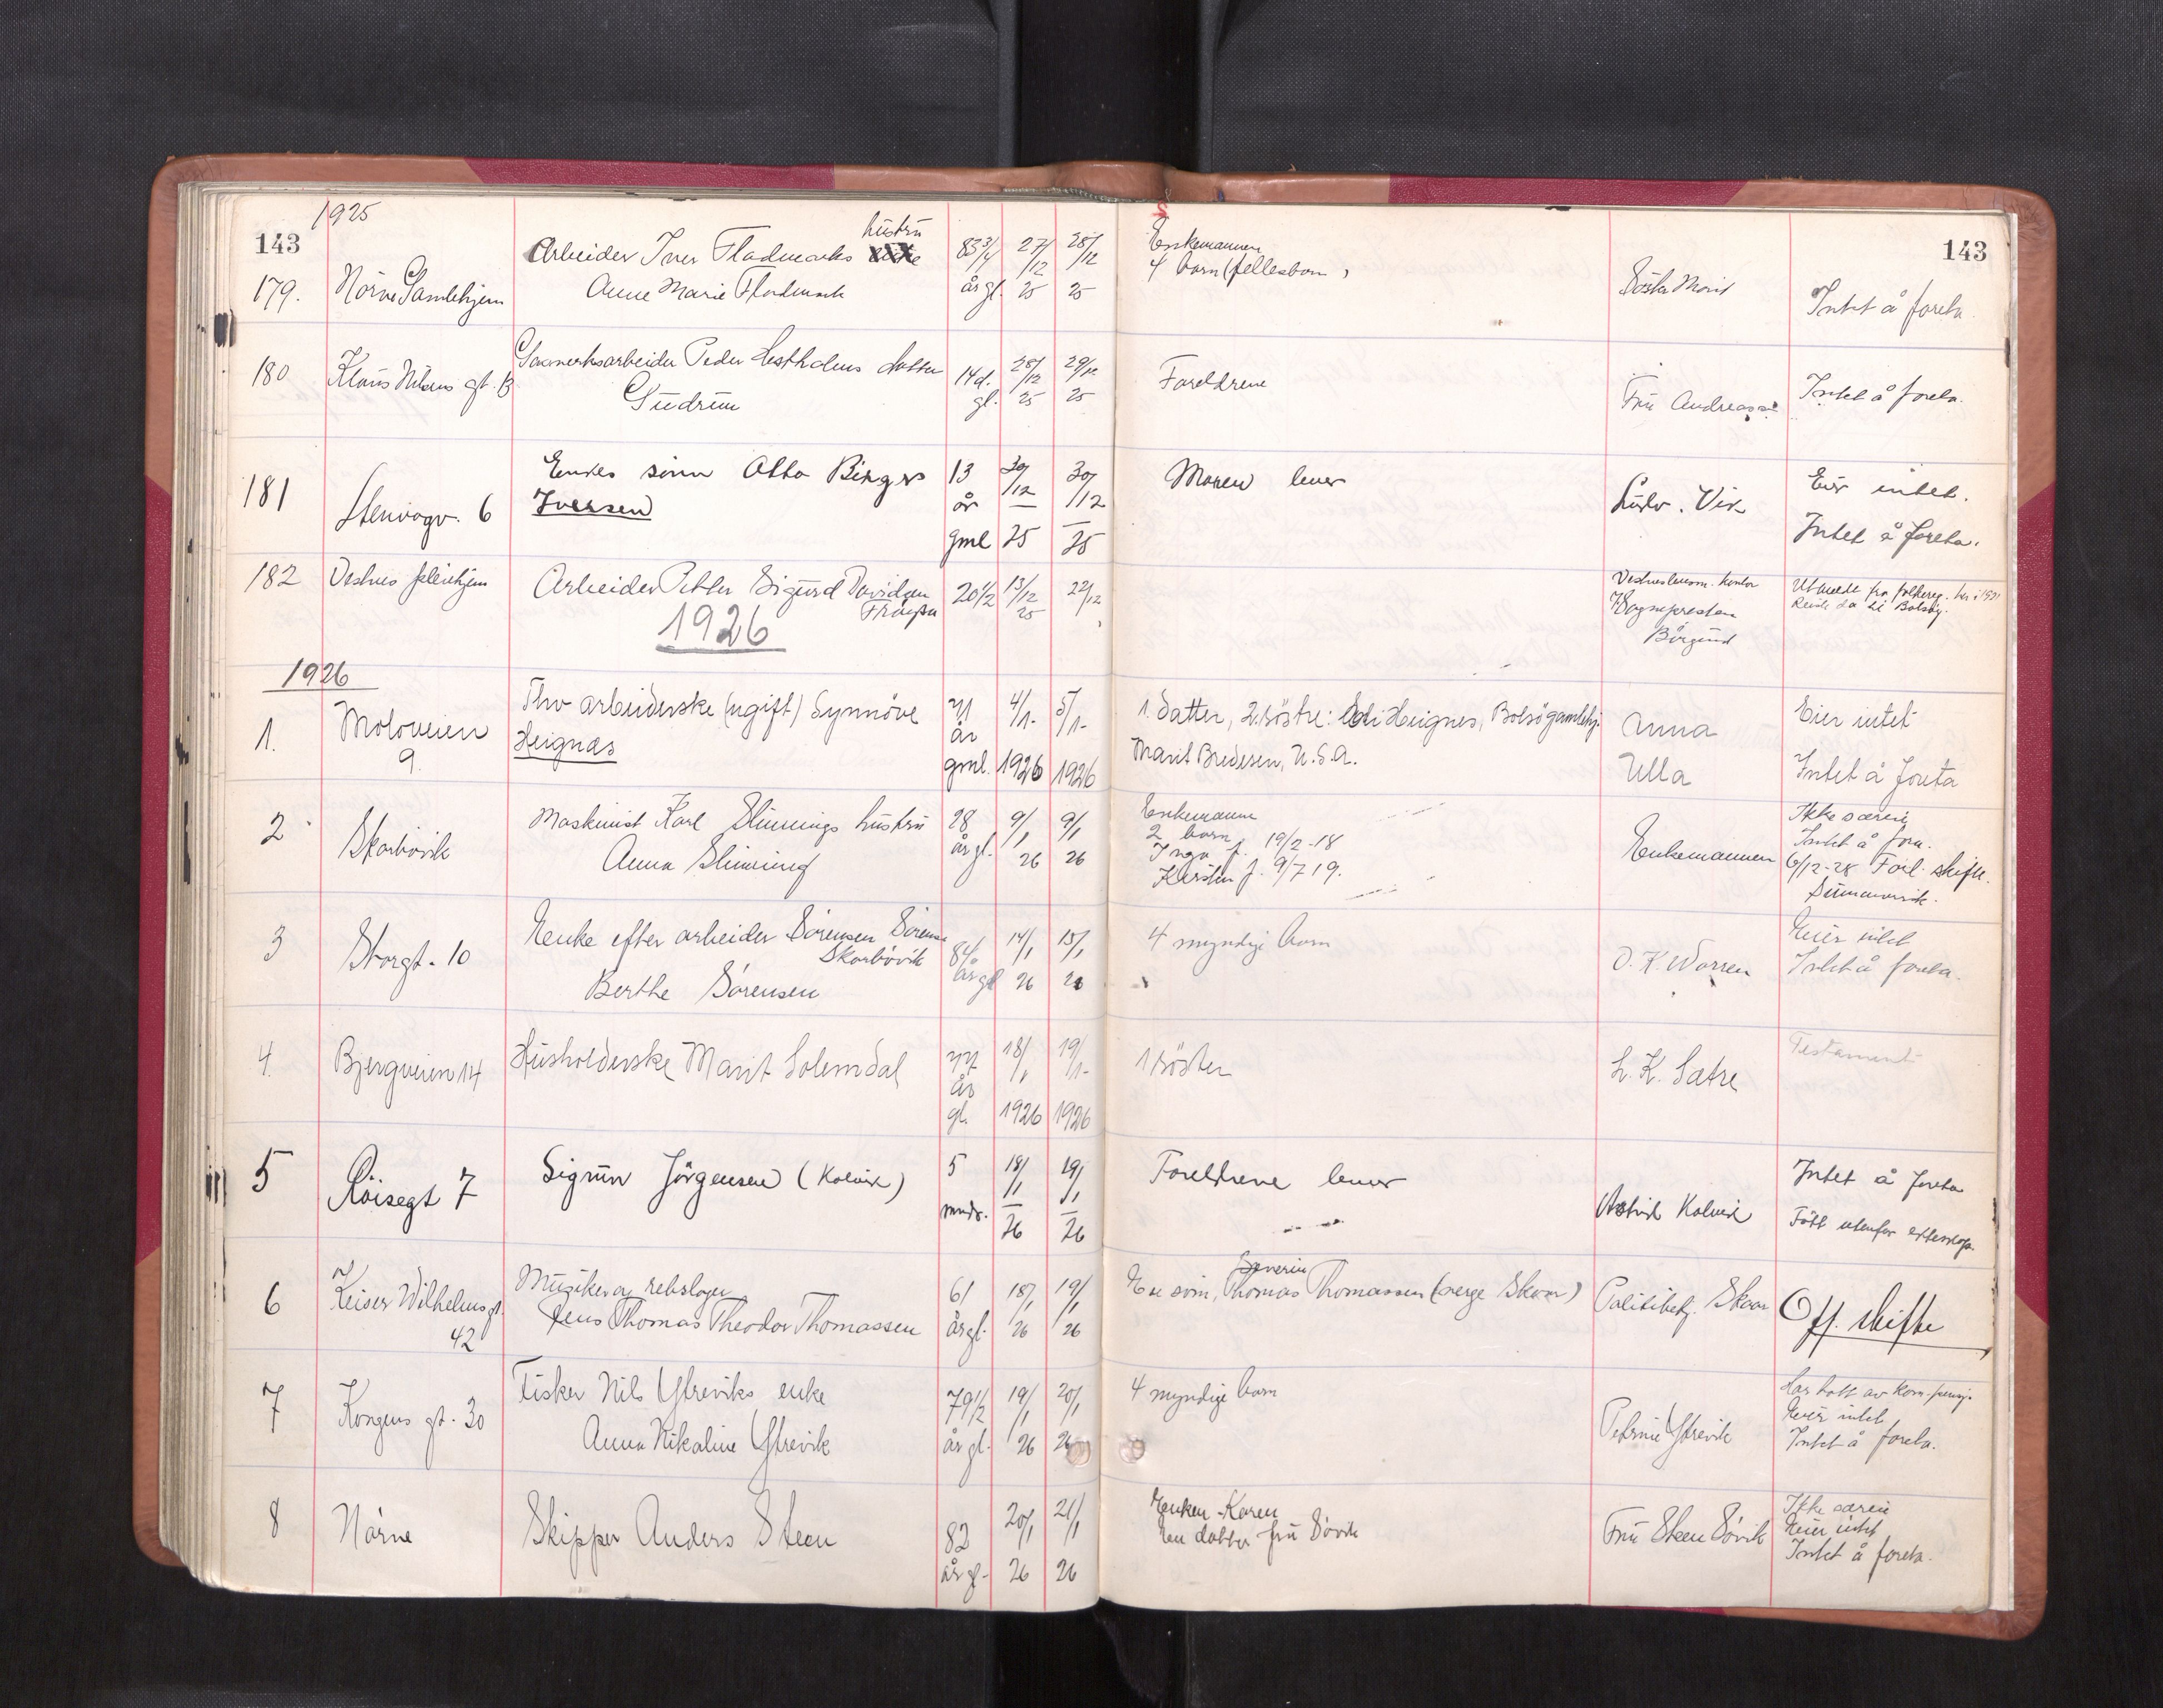 1925
143
143
179. Nörve Gamlehjem
Arbeider Iver Fladmarks hustru
Anne Marie Fladmark
83 3/4 år gl.
27/12 25
28/12 25
Enkemannen
4 barn (fellesbarn)
Söster Marit
Intet å foreta.
180 Klaus Nilsens gt. 13
Peder Hestholms datter
Gudrun
14 d. gl.
28/12 25
29/12 25
Foreldrene
Fru Andreassen
Intet å foreta.
181 Stenvågv. 6
Enkes sönn Otto Birger
Iversen
13 år gml
30/12 25
30/12 25
Moren lever
Ludv. Vik
Eier intet.
Intet å foreta.
182 Vestnes pleiehjem
Arbeider Petter Sigurd Davidsen
20 1/2
13/12 25
22/12
Vestnes lensm. kontor
Sognepresten
Borgund
Utmeldt fra folkereg. her i 1921
Reiste da til Bolsöy.
1926
1926
1. Moloveien
9.
Fhv arbeiderske (ugift) Synnöve
Heignæs
71 år gml.
4/1- 1926
5/1- 1926
1 datter, 2 söstre: Heignes, Bolsö gamlehj.
Marit Bredesen, U.S.A.
Anna
Ulla
Eier intet
Intet å foreta
2 Skarbövik
Maskinist Karl Slinnings hustru
Anna Slinning
28 år gl.
9/1 26
9/1 26
Enkemann
2 barn
Inga f. 19/2-18
Kirsten f. 9/7 19.
Enkemannen
Ikke særeie
Intet å fora.
6/12-28 Forl. skifte.
3 Storgt. 10
Enke efter arbeider Sörensen Sörensen
Skarbövik
Berthe Sörensen
84 år gl
14/1 26
15/1 26
4 myndige barn
O. K. Warren
Eier intet
Intet å foreta.
4. Bjergveien 14
Husholderske Marit Solemdal
77 år gl.
18/1 1926
19/1- 1926
1 söster
L. K. Sætre
Testament
5 Röisegt 7
Sigrun Jörgensen (Kolvik)
5 mndr.
18/1 26
19/1 26
Foreldrene lever
Astrid Kolvik
Intet å foreta
Född utenfor ekteskap.
6 Keiser Wilhelms gt.
42
Musiker og rebslager
Jens Thomas Theodor Thomassen
61 år gl.
18/1 26
19/1 26
Severin
En sönn, Thomas Thomassen (verge Skaar)
Politibetj. Skaar
Off. skifte
7 Kongens gt. 30
Fisker Nils Ytreviks enke
Anna Nikoline Ytrevik
79 1/2 år gl.
19/1 26
20/1 26
4 myndige barn
Petrine Ytrevik
Har hatt av kom. pensj.
Eier intet
Intet å foreta.
8 Nörve
Skipper Anders Steen
82 år gl.
20/1 26
21/1 26
Enken Karen
En datter fru Sövik
Fru Steen Sövik
Ikke særeie
Eier intet
Intet å foreta.